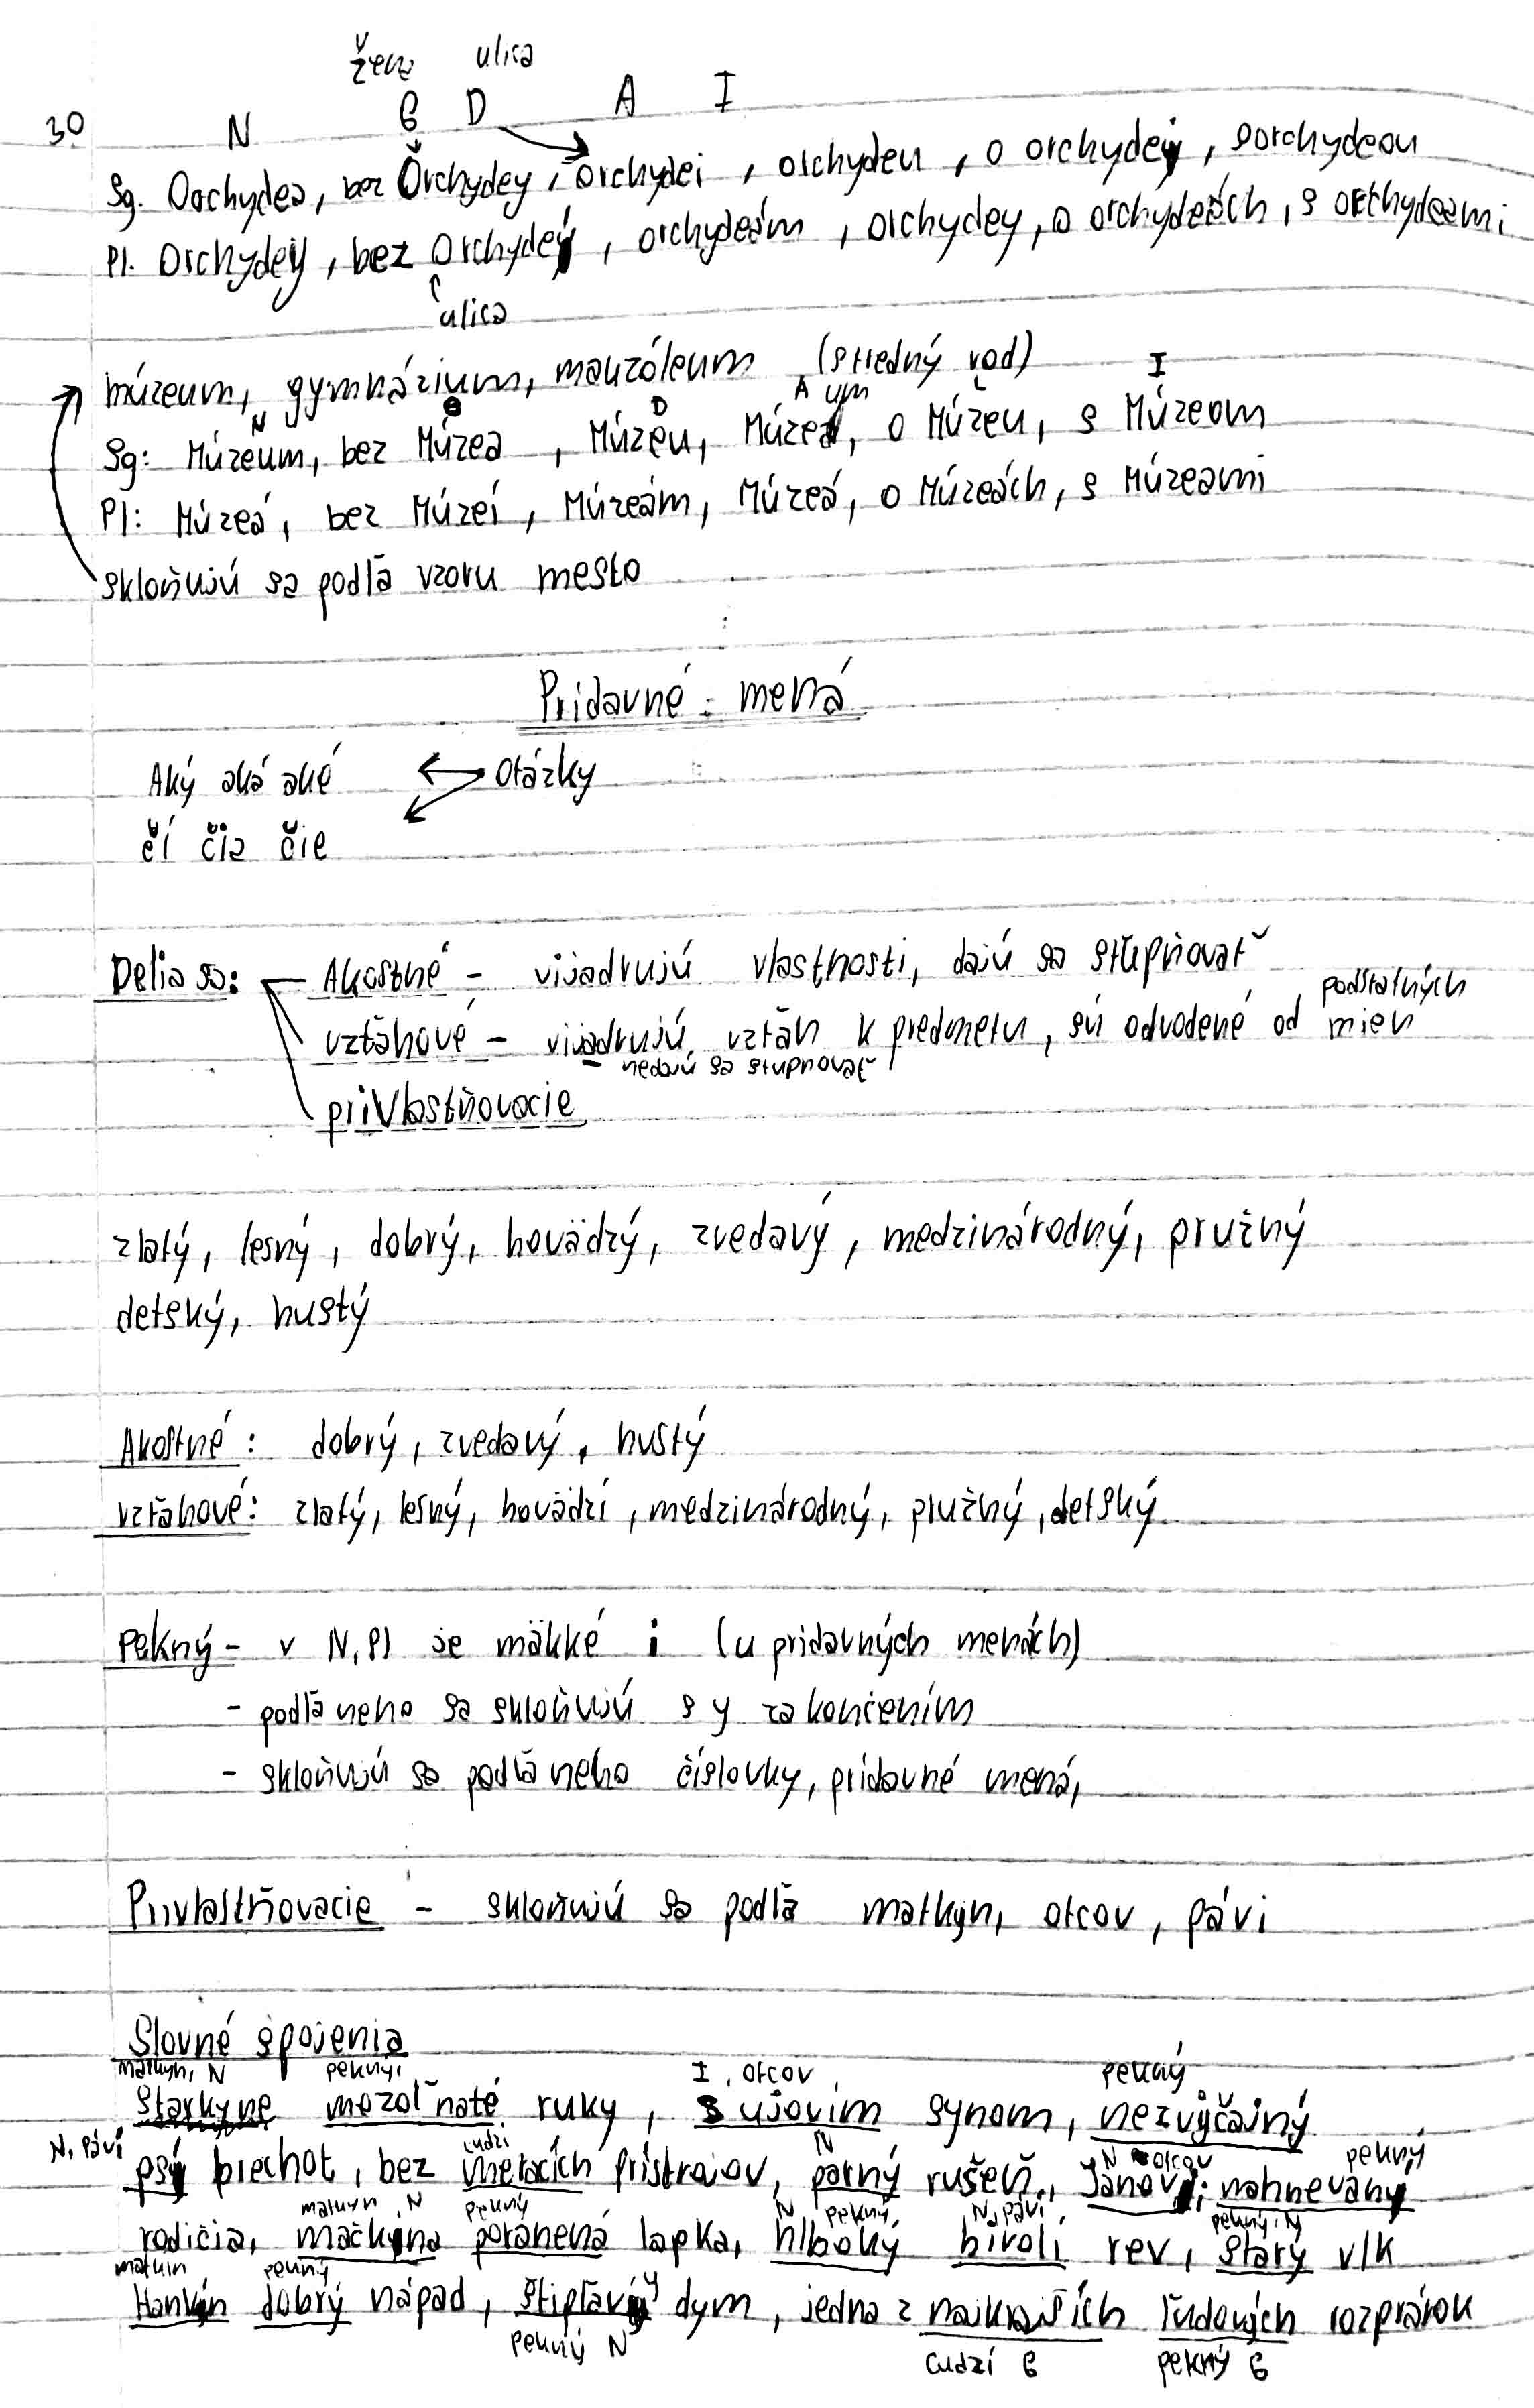 žena ulica
30 N G D A I
Sg. Orchydea, bez Orchydey, orchydei, orchydeu, o orchydey, s orchydeou
Pl. Orchydey, bez Orchydey, orchydeám, orchydey, o orchydeách, s orchydeami
ulica
múzeum, gymnázium, mauzóleum (stredný rod) I
N G D A um
Sg: Múzeum, bez Múzea, Múzeu, Múzea, o Múzeu, s Múzeom
Pl: Múzeá, bez Múzeí, Múzeám, Múzeá, o Múzeách, s Múzeami
skloňujú sa podľa vzoru mesto
Prídavné mená
Aký aká aké Otázky
čí čia čie
Delia sa: Akostné - vijadrujú vlastnosti, dajú sa stupňovať
podstatných
vzťahové - vijadrujú vzťah k predmetu, sú odvodené od mien
- nedajú sa stupnovať
privlastňovacie
zlatý, lesný, dobrý, hovädzý, zvedavý, medzinárodný, pružný
detský, hustý
Akostné: dobrý, zvedavý, hustý
vzťahové: zlatý, lesný, hovädzí, medzinárodný, pružný, detský
Pekný - v N, Pl je mäkké i (u pridavných menách)
- podľa neho sa skloňujú s y zakončením
- skloňujú sa podľa neho číslovky, prídavné mená,
Privlastňovacie - skloňujú sa podľa matkyn, otcov, páví
Slovné spojenia
matkyn, N pekný, I, otcov pekný
Starkyne mozoľnaté ruky, s ujovím synom, nezvyčajný
N, páví cudzí N N otcov pekný
psý brechot, bez meracích prístrojov, parný rušeň, Janový; nahnevaný
matkyn N pekný N pekný, N, páví pekný, N
rodičia, mačkyna poranená lapka, hlboký bivolí rev, starý vlk
matkin pekný
Hankyn dobrý nápad, štiplavý dym, jedna z najkrajších ľudových rozprávok
pekný N cudzí G pekný G